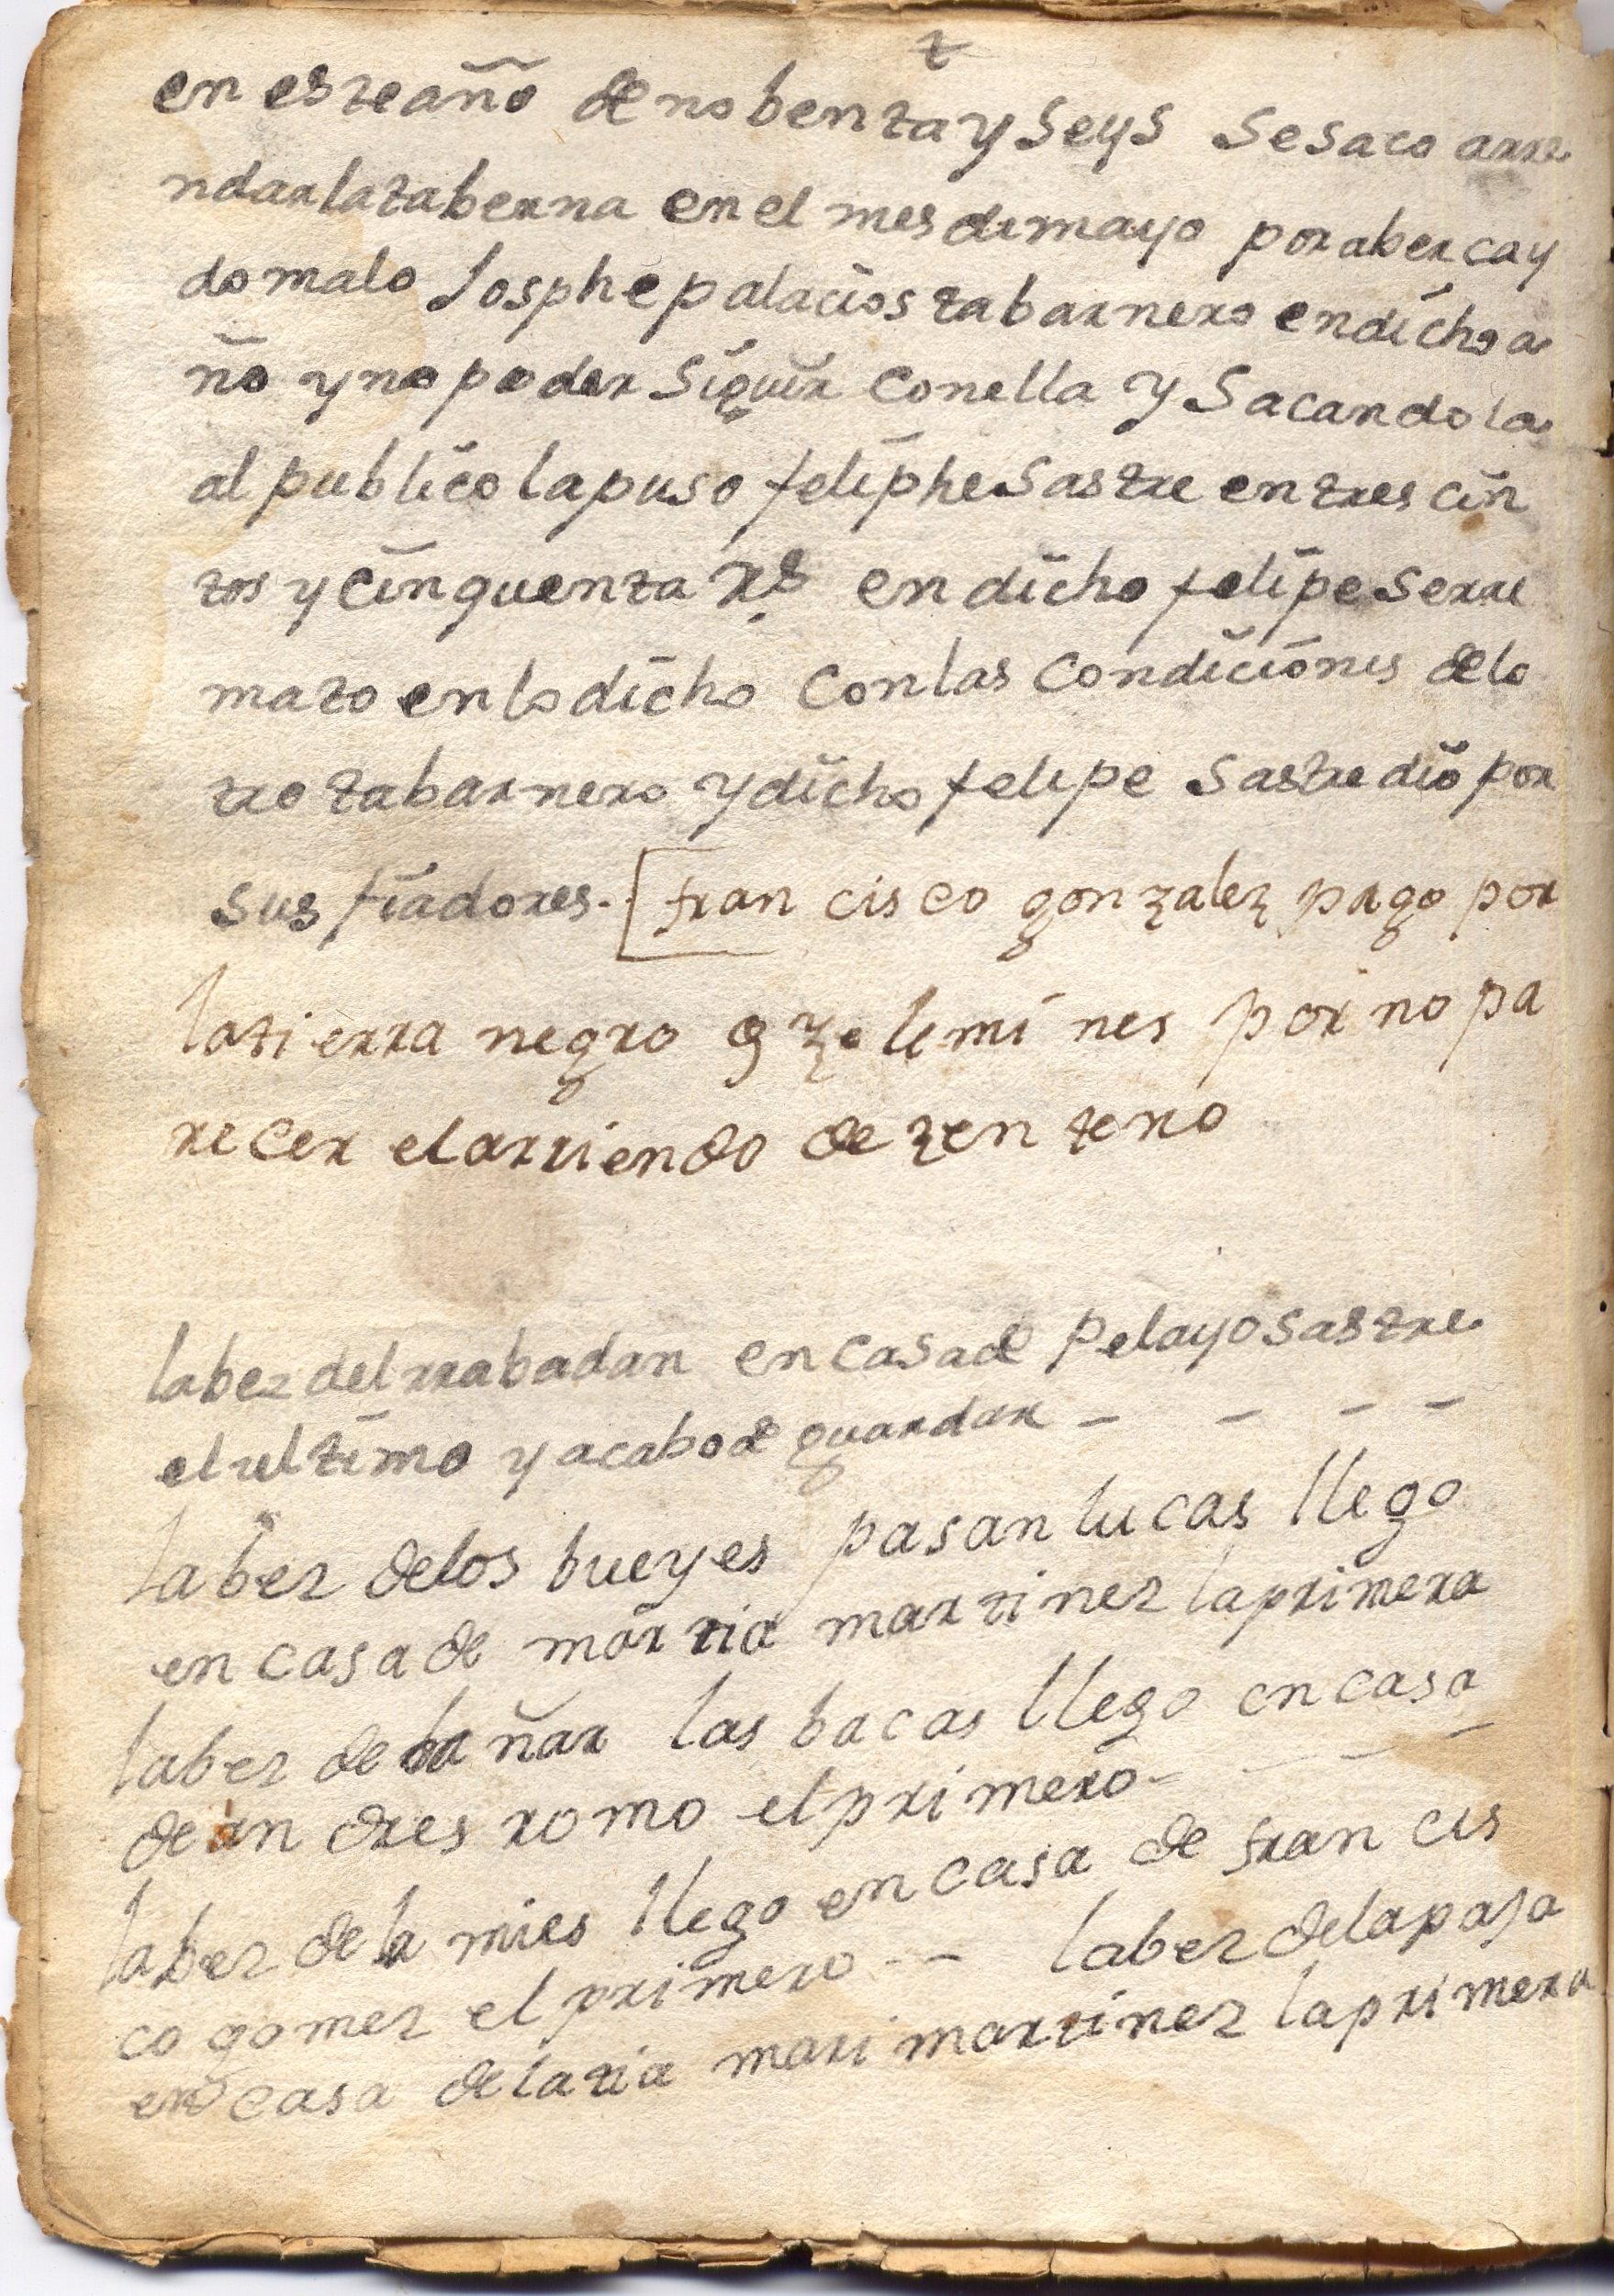 t
en este año de nobenta y seys se saco arre
ndar la taberna en el mes de mayo por aber cay
do malo Josphe palacios tabarnero en dicho a
ño y no poder siguir con ella y sacandola
al publico la puso feliphe sastre en trescin
tos y cinquenta rs en dicho felipe se rre
mato en lo dicho con las condicionis de lo
tro tabarnero y dicho felipe sastre dio por
sus fiadores - francisco gonzalez pago por
la tierra negro 9 zelemines por no pa
recer el arriendo de zenteno
la bez del rrabadan en casa de pelayo sastre
el ultimo y acabo de guardar - - - -
la bez de los bueyes pa san lucas llego
en casa de martia martinez la primera
la bez de bañar las bacas llego en casa
de andres romo el primero - - - -
la bez de la mies llego en casa de francis
co gomez el primero - - la bez de la paja
en casa de la tia mari martinez la primera